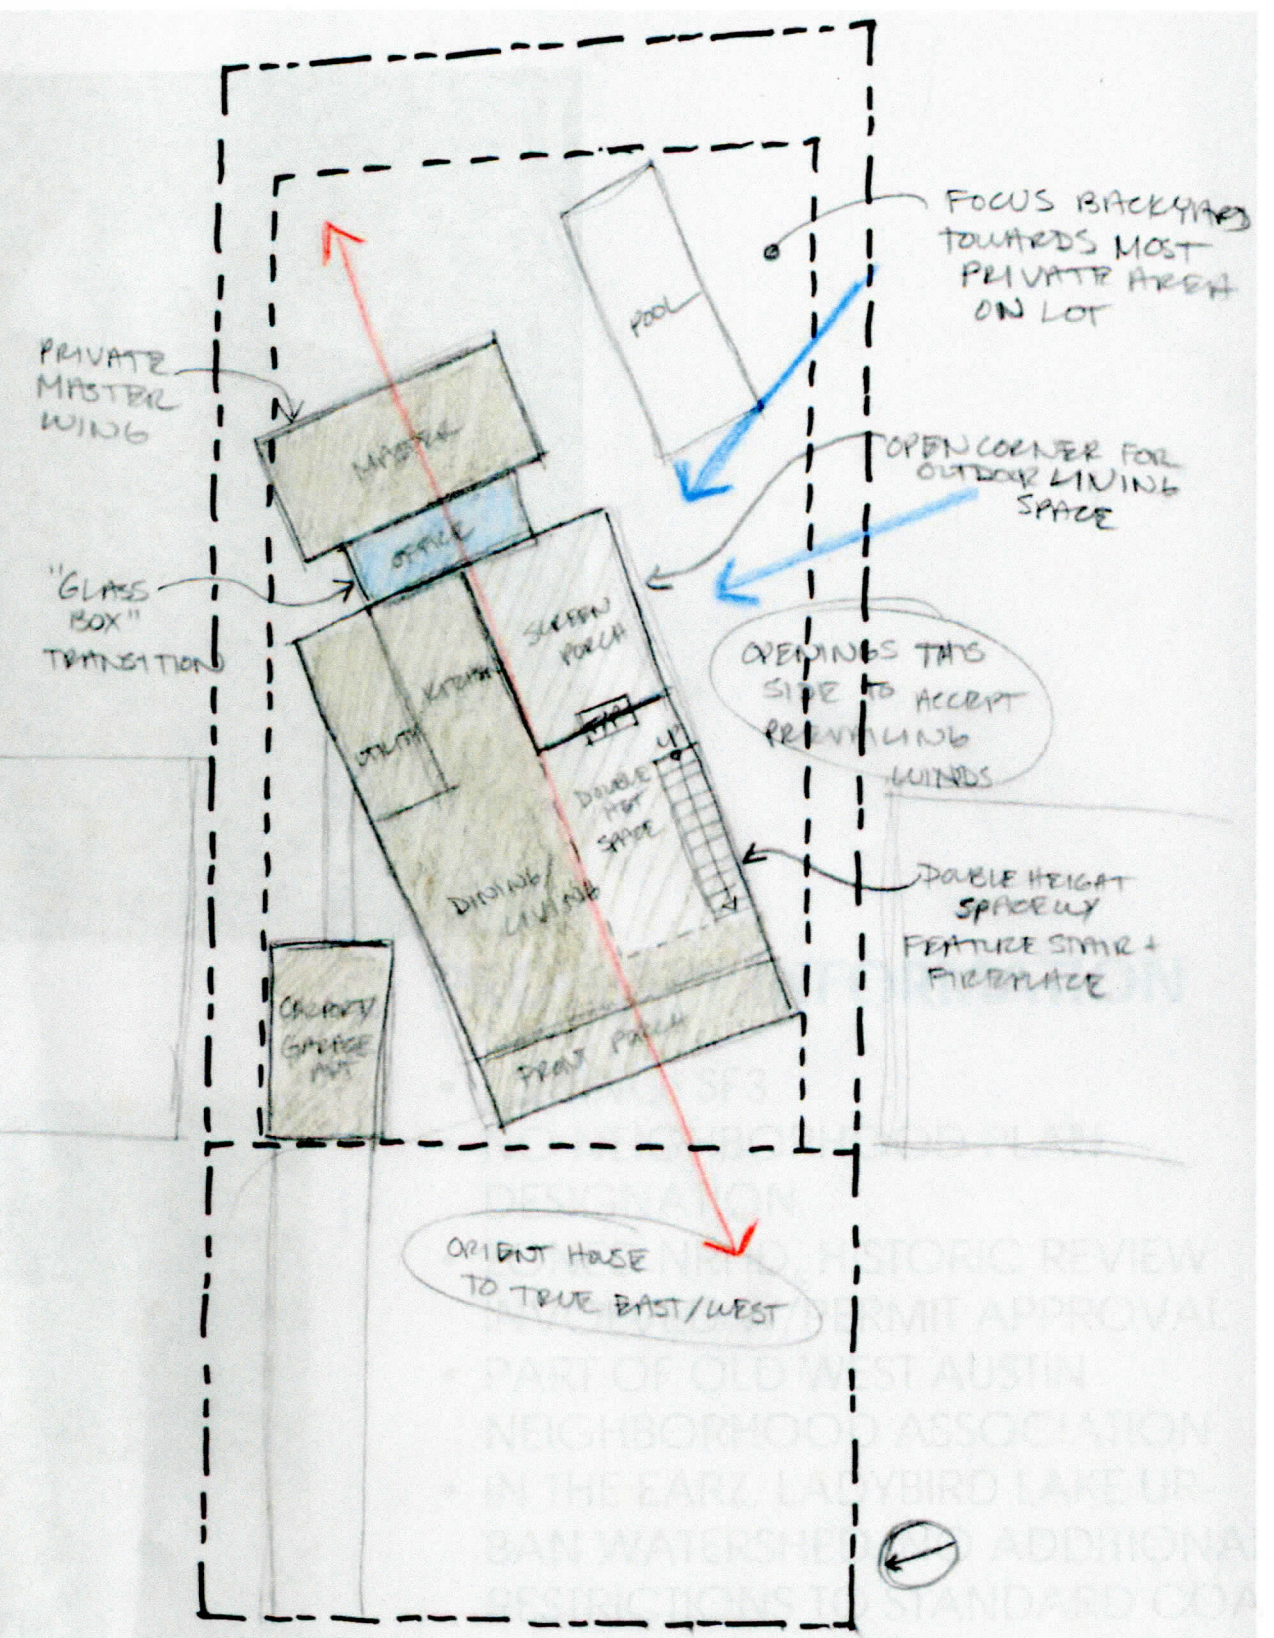 FOCUS BACKYARD
TOWARDS MOST
PRIVATE AREA
ON LOT
POOL
PRIVATE
MASTER
WING
MASTER
OPEN CORNER FOR
OUTDOOR LIVING
SPACE
OFFICE
"GLASS
BOX"
TRANSITION
SCREEN
PORCH
OPENINGS THIS
SIDE TO ACCEPT
PREVAILING
WINDS
KITCHEN
UTILITY
F/P
UP
DOUBLE
HGT
SPACE
DOUBLE HEIGHT
SPACE W/
FEATURE STAIR +
FIREPLACE
DINING/
LIVING
CARPORT/
GARAGE
APT
FRONT PORCH
SF3
DESIGNATION
ORIENT HOUSE
TO TRUE EAST/WEST
HISTORIC REVIEW
PERMIT APPROVAL
• PART OF OLD WEST AUSTIN
NEIGHBORHOOD ASSOCIATION
• IN THE LADYBIRD LAKE UR-
BAN WATERSHED ADDITIONA
RESTRICTIONS TO STANDARD